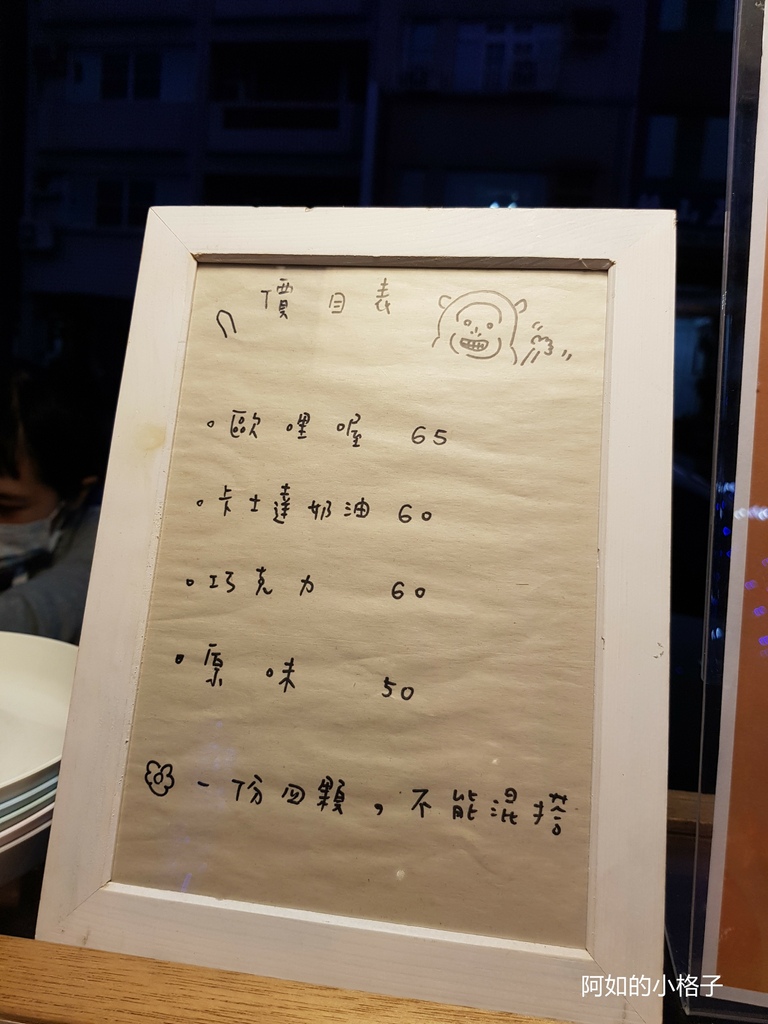 價目表
歐哩喔 65
卡士達奶油 60
巧克力 60
原味 50
一份四顆，不能混搭
阿如的小格子